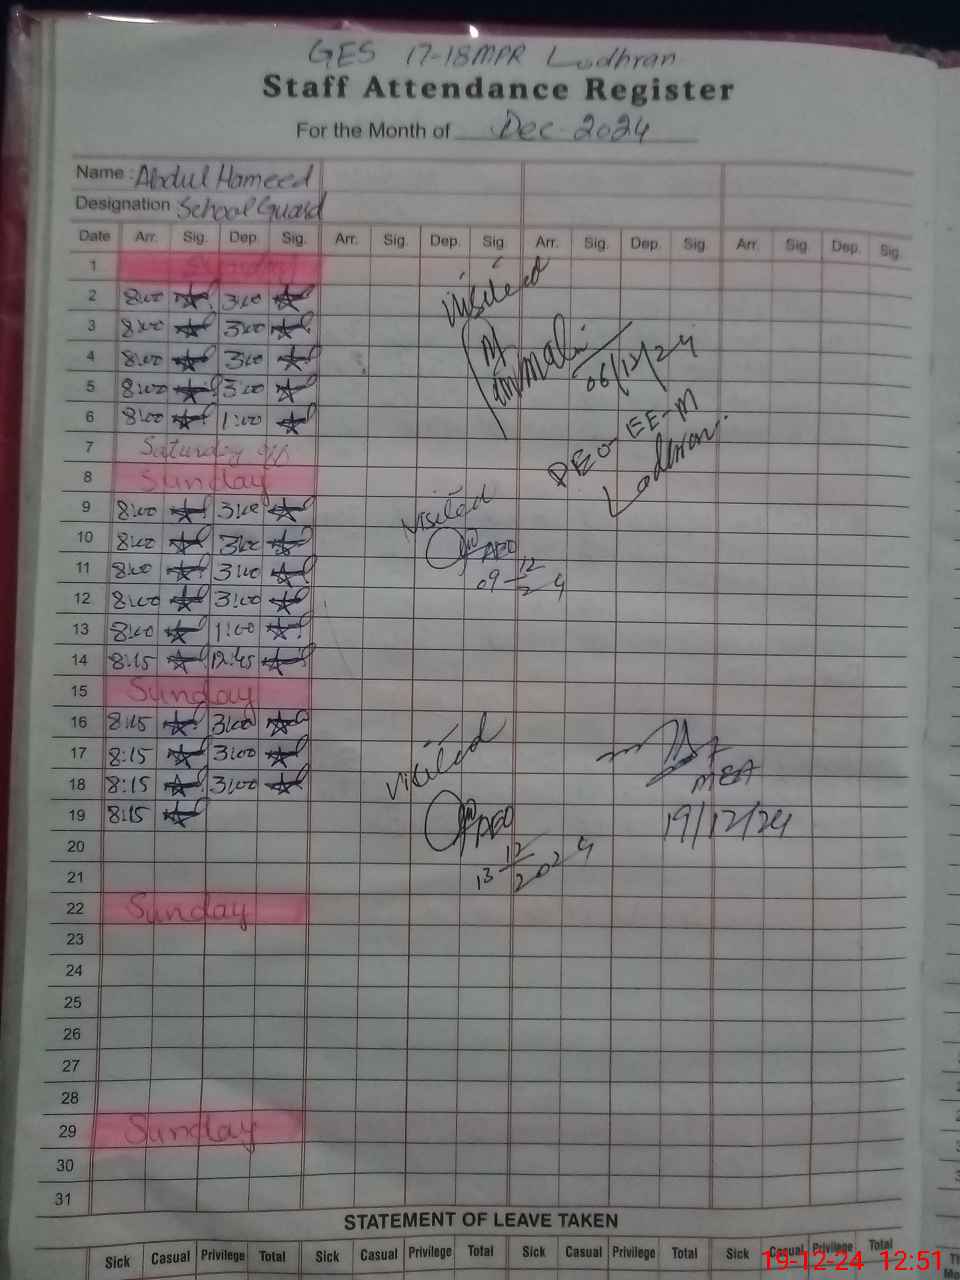 GES 17-18MPR Lodhran
Staff Attendance Register
For the Month of Dec-2024
Name : Abdul Hameed
Designation School Guard
Date Arr. Sig. Dep. Sig. Arr. Sig. Dep. Sig Arr. Sig. Dep. Sig. Arr. Sig. Dep. Sig.
1 Sunday
2 8:00 3:00
3 8:00 3:00
4 8:00 3:00
5 8:00 3:00
6 8:00 1:00
7 Saturday off
8 Sunday
9 8:00 3:00
10 8:00 3:00
11 8:00 3:00
12 8:00 3:00
13 8:00 1:00
14 8:15 12:45
15 Sunday
16 8:15 3:00
17 8:15 3:00
18 8:15 3:00
19 8:15
20
21
22 Sunday
23
24
25
26
27
28
29 Sunday
30
31
Visited
06/12/24
DEO-EE-M
Lodhran
Visited
AEO
09-12
24
Visited
AEO
13-12
2024
MEA
19/12/24
STATEMENT OF LEAVE TAKEN
Sick Casual Privilege Total Sick Casual Privilege Total Sick Casual Privilege Total Sick Casual Privilege Total
19-12-24 12:51